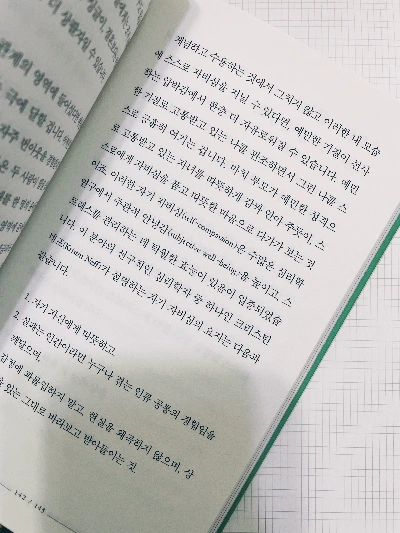 체념하고 수용하는 것에서 그치지 않고 이러한 내 모습
에 스스로 자비심을 지닐 수 있다면, 예민한 기질이 선사
하는 압박감에서 한층 더 자유로워질 수 있습니다. 예민
한 기질로 고통받고 있는 나를 관조하면서 그런 나를 스
스로 긍휼히 여기는 겁니다. 마치 부모가 예민한 성격으
로 고통받고 있는 자녀를 따뜻하게 감싸 안아 주듯이, 스
스로에게 자비심을 품고 따뜻한 마음으로 다가가 보는 것
이죠. 이러한 자기 자비심(self-compassion)은 수많은 심리학
연구에서 주관적 안녕감(subjective well-being)을 높이고, 스
트레스를 관리하는 데 탁월한 효능이 있음이 입증되었습
니다. 이 분야의 선구적인 심리학자 중 하나인 크리스틴
네프(Kristin Neff)가 설명하는 자기 자비심의 요지는 다음과
같습니다.
1. 자기 자신에게 따뜻하고
2. 실패는 인간이라면 누구나 겪는 인류 공통의 경험임을
깨달으며,
감정에 과몰입하지 말고, 현실을 왜곡하지 않으며, 상
있는 그대로 바라보고 받아들이는 것.
142 / 143